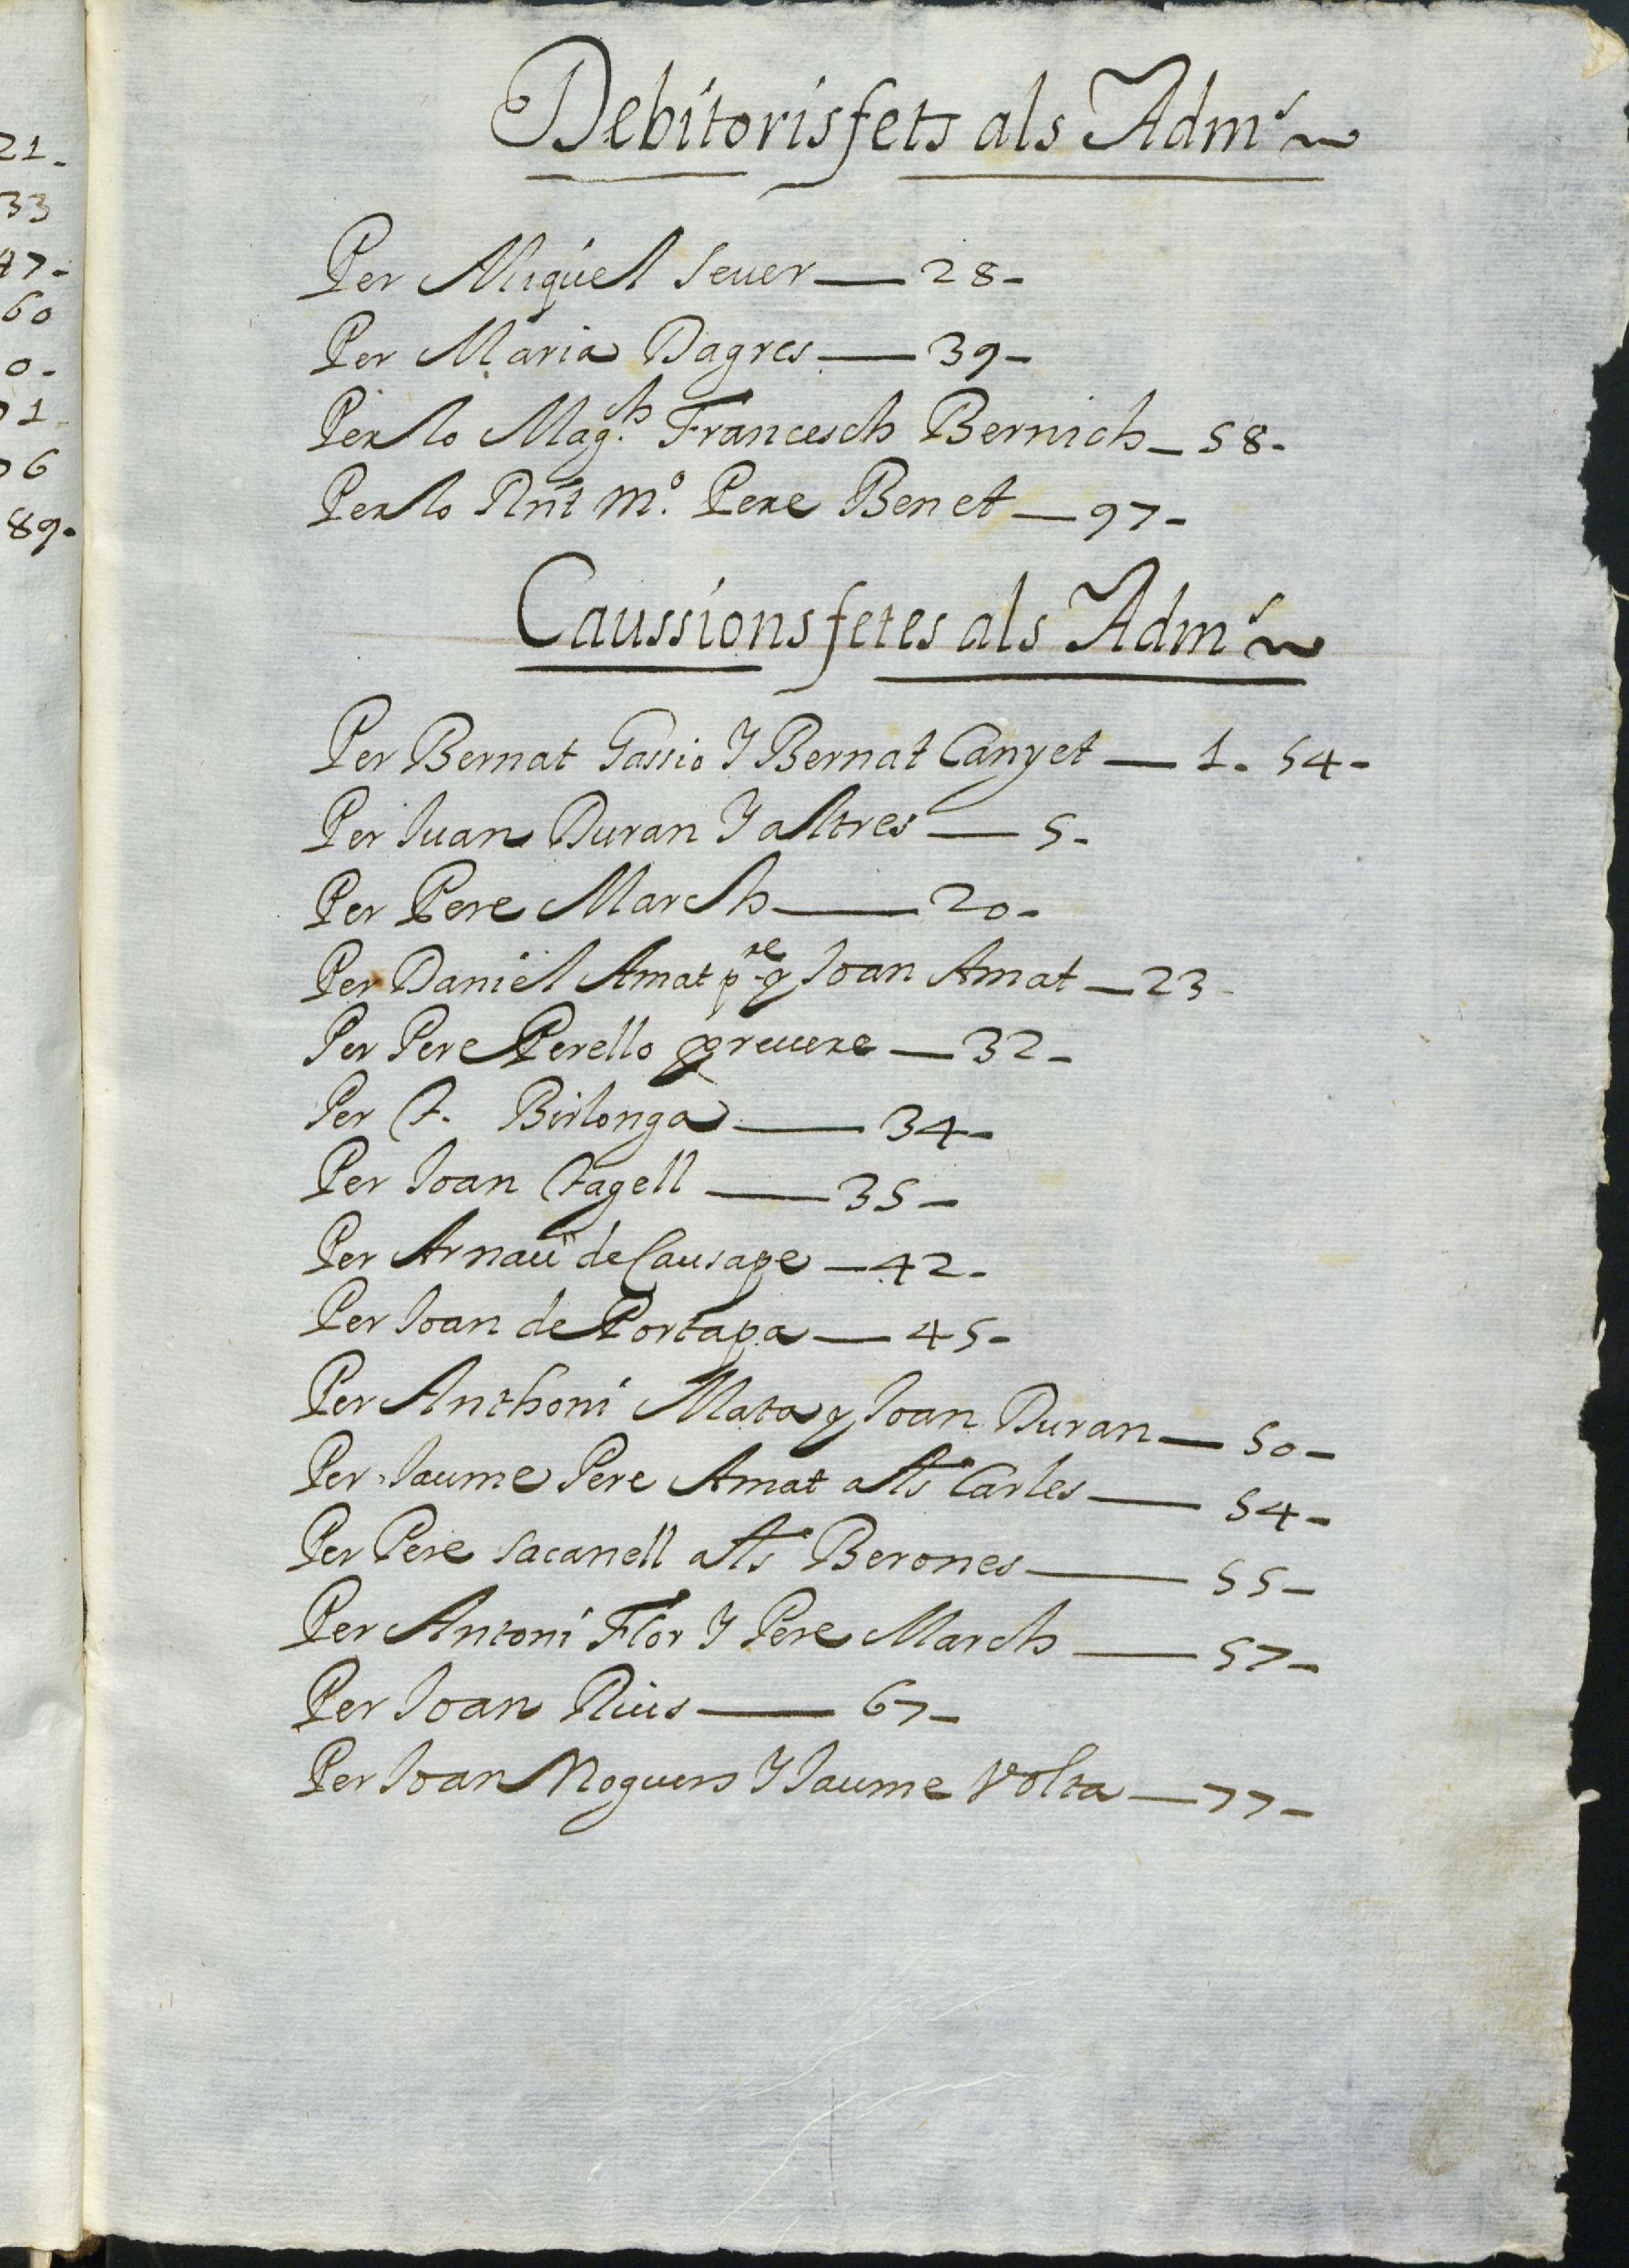 21-
33
47-
60
0-
1
6
89-
Debitoris fets als Adm.rs
Per Miquel Sever — 28-
Per Maria Dagres — 39-
Per lo Mag.ch Francesch Bernich — 58-
Per lo Rnt m.o Pere Benet — 97-
Caussions fetes als Adm.rs
Per Bernat Gassio Y Bernat Canyet — 1. 54-
Per Juan Duran Y altres — 5-
Per Pere March — 20-
Per Daniel Amat p.re y Joan Amat — 23-
Per Pere Perello prevere — 32-
Per F. Birlonga — 34-
Per Joan Fagell — 35-
Per Arnau de Causape — 42-
Per Joan de Portapa — 45-
Per Anthoni Mata y Joan Duran — 50-
Per Jaume Pere Amat als Carles — 54-
Per Pere Sacanell als Berones — 55-
Per Antoni Flor Y Pere March — 57-
Per Joan Rius — 67-
Per Joan Noguers Y Jaume Volta — 77-